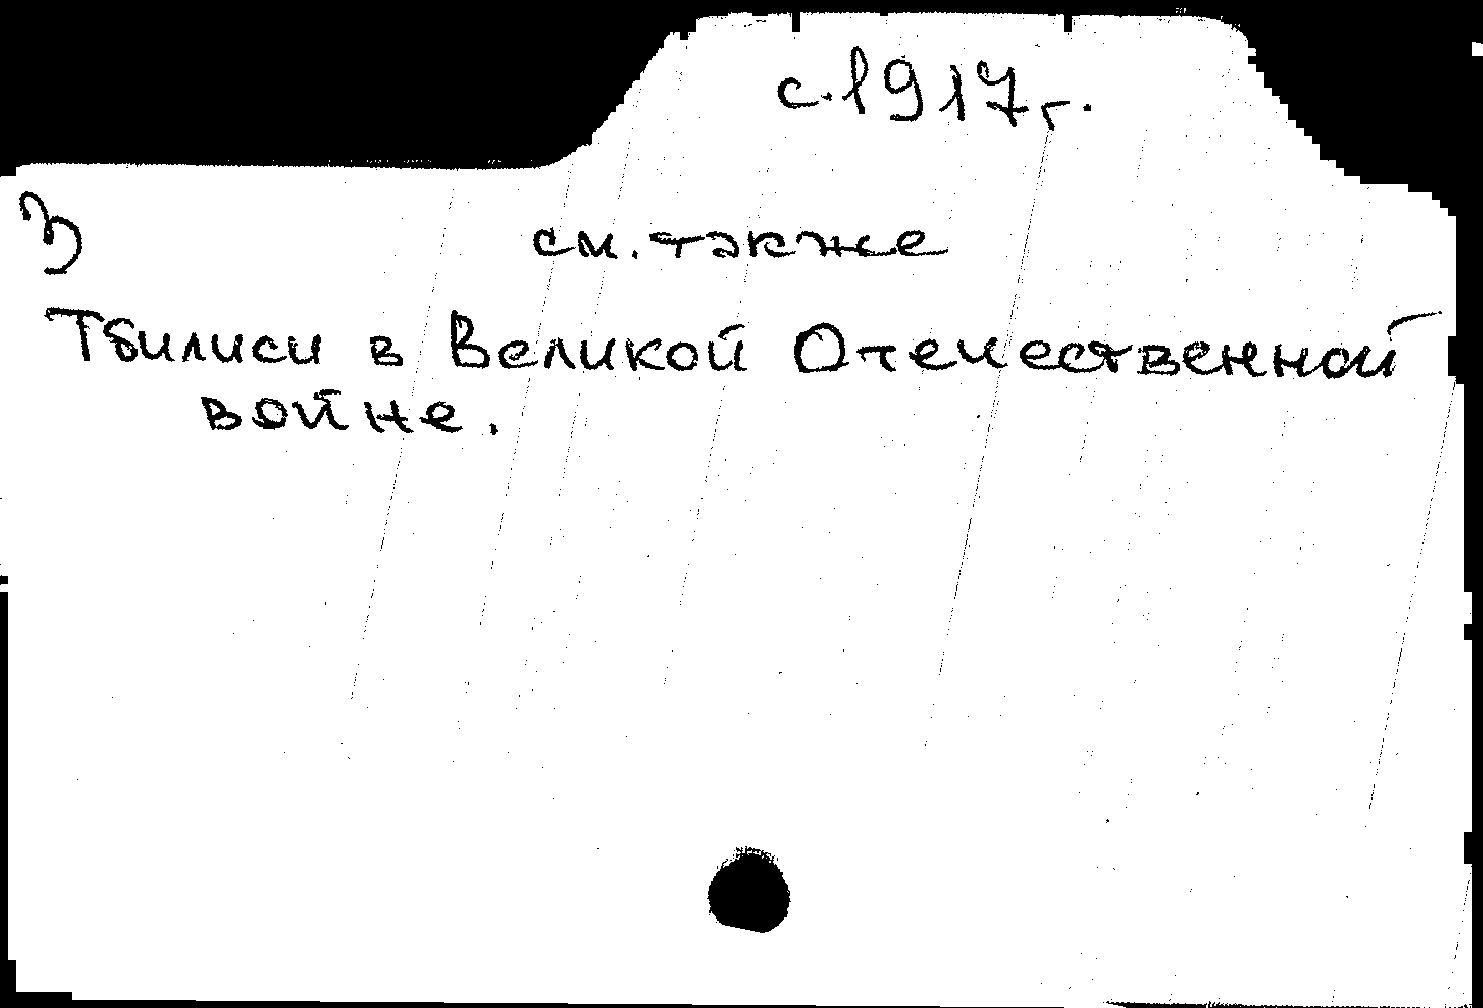 с.1917г.
З
см. также
Тбилиси в Великой Отечественной
войне.